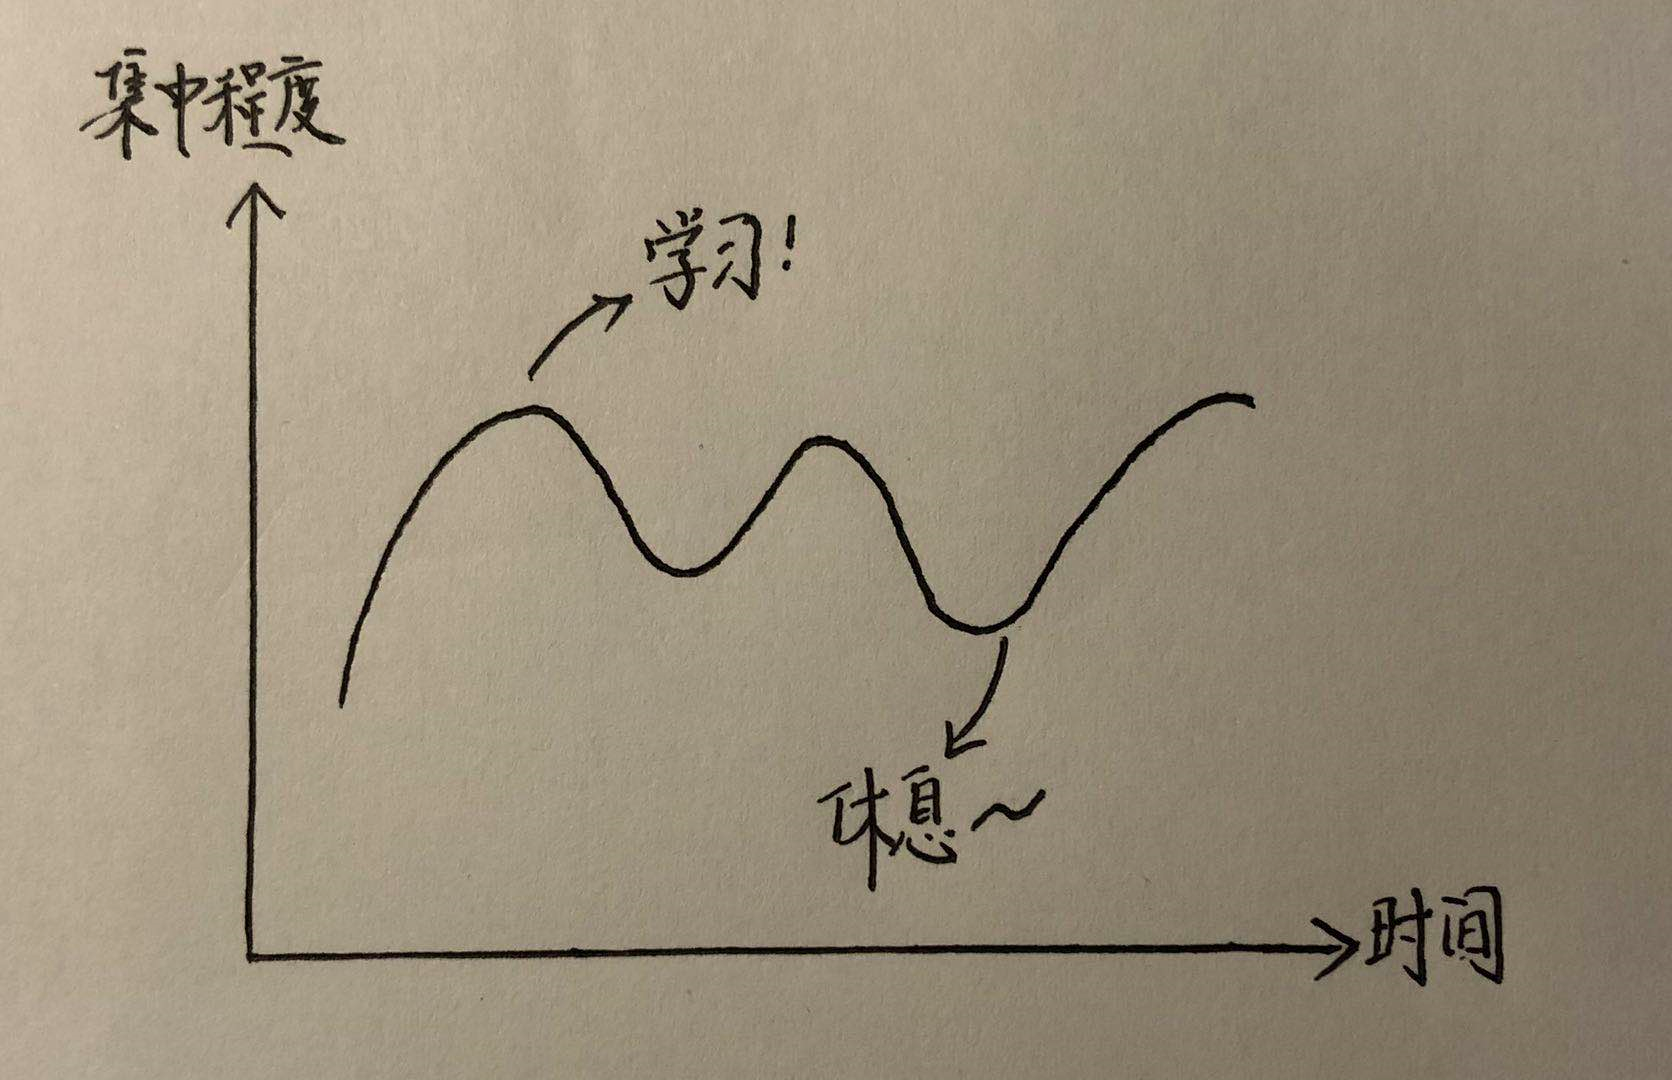 集中程度
学习!
休息~
时间